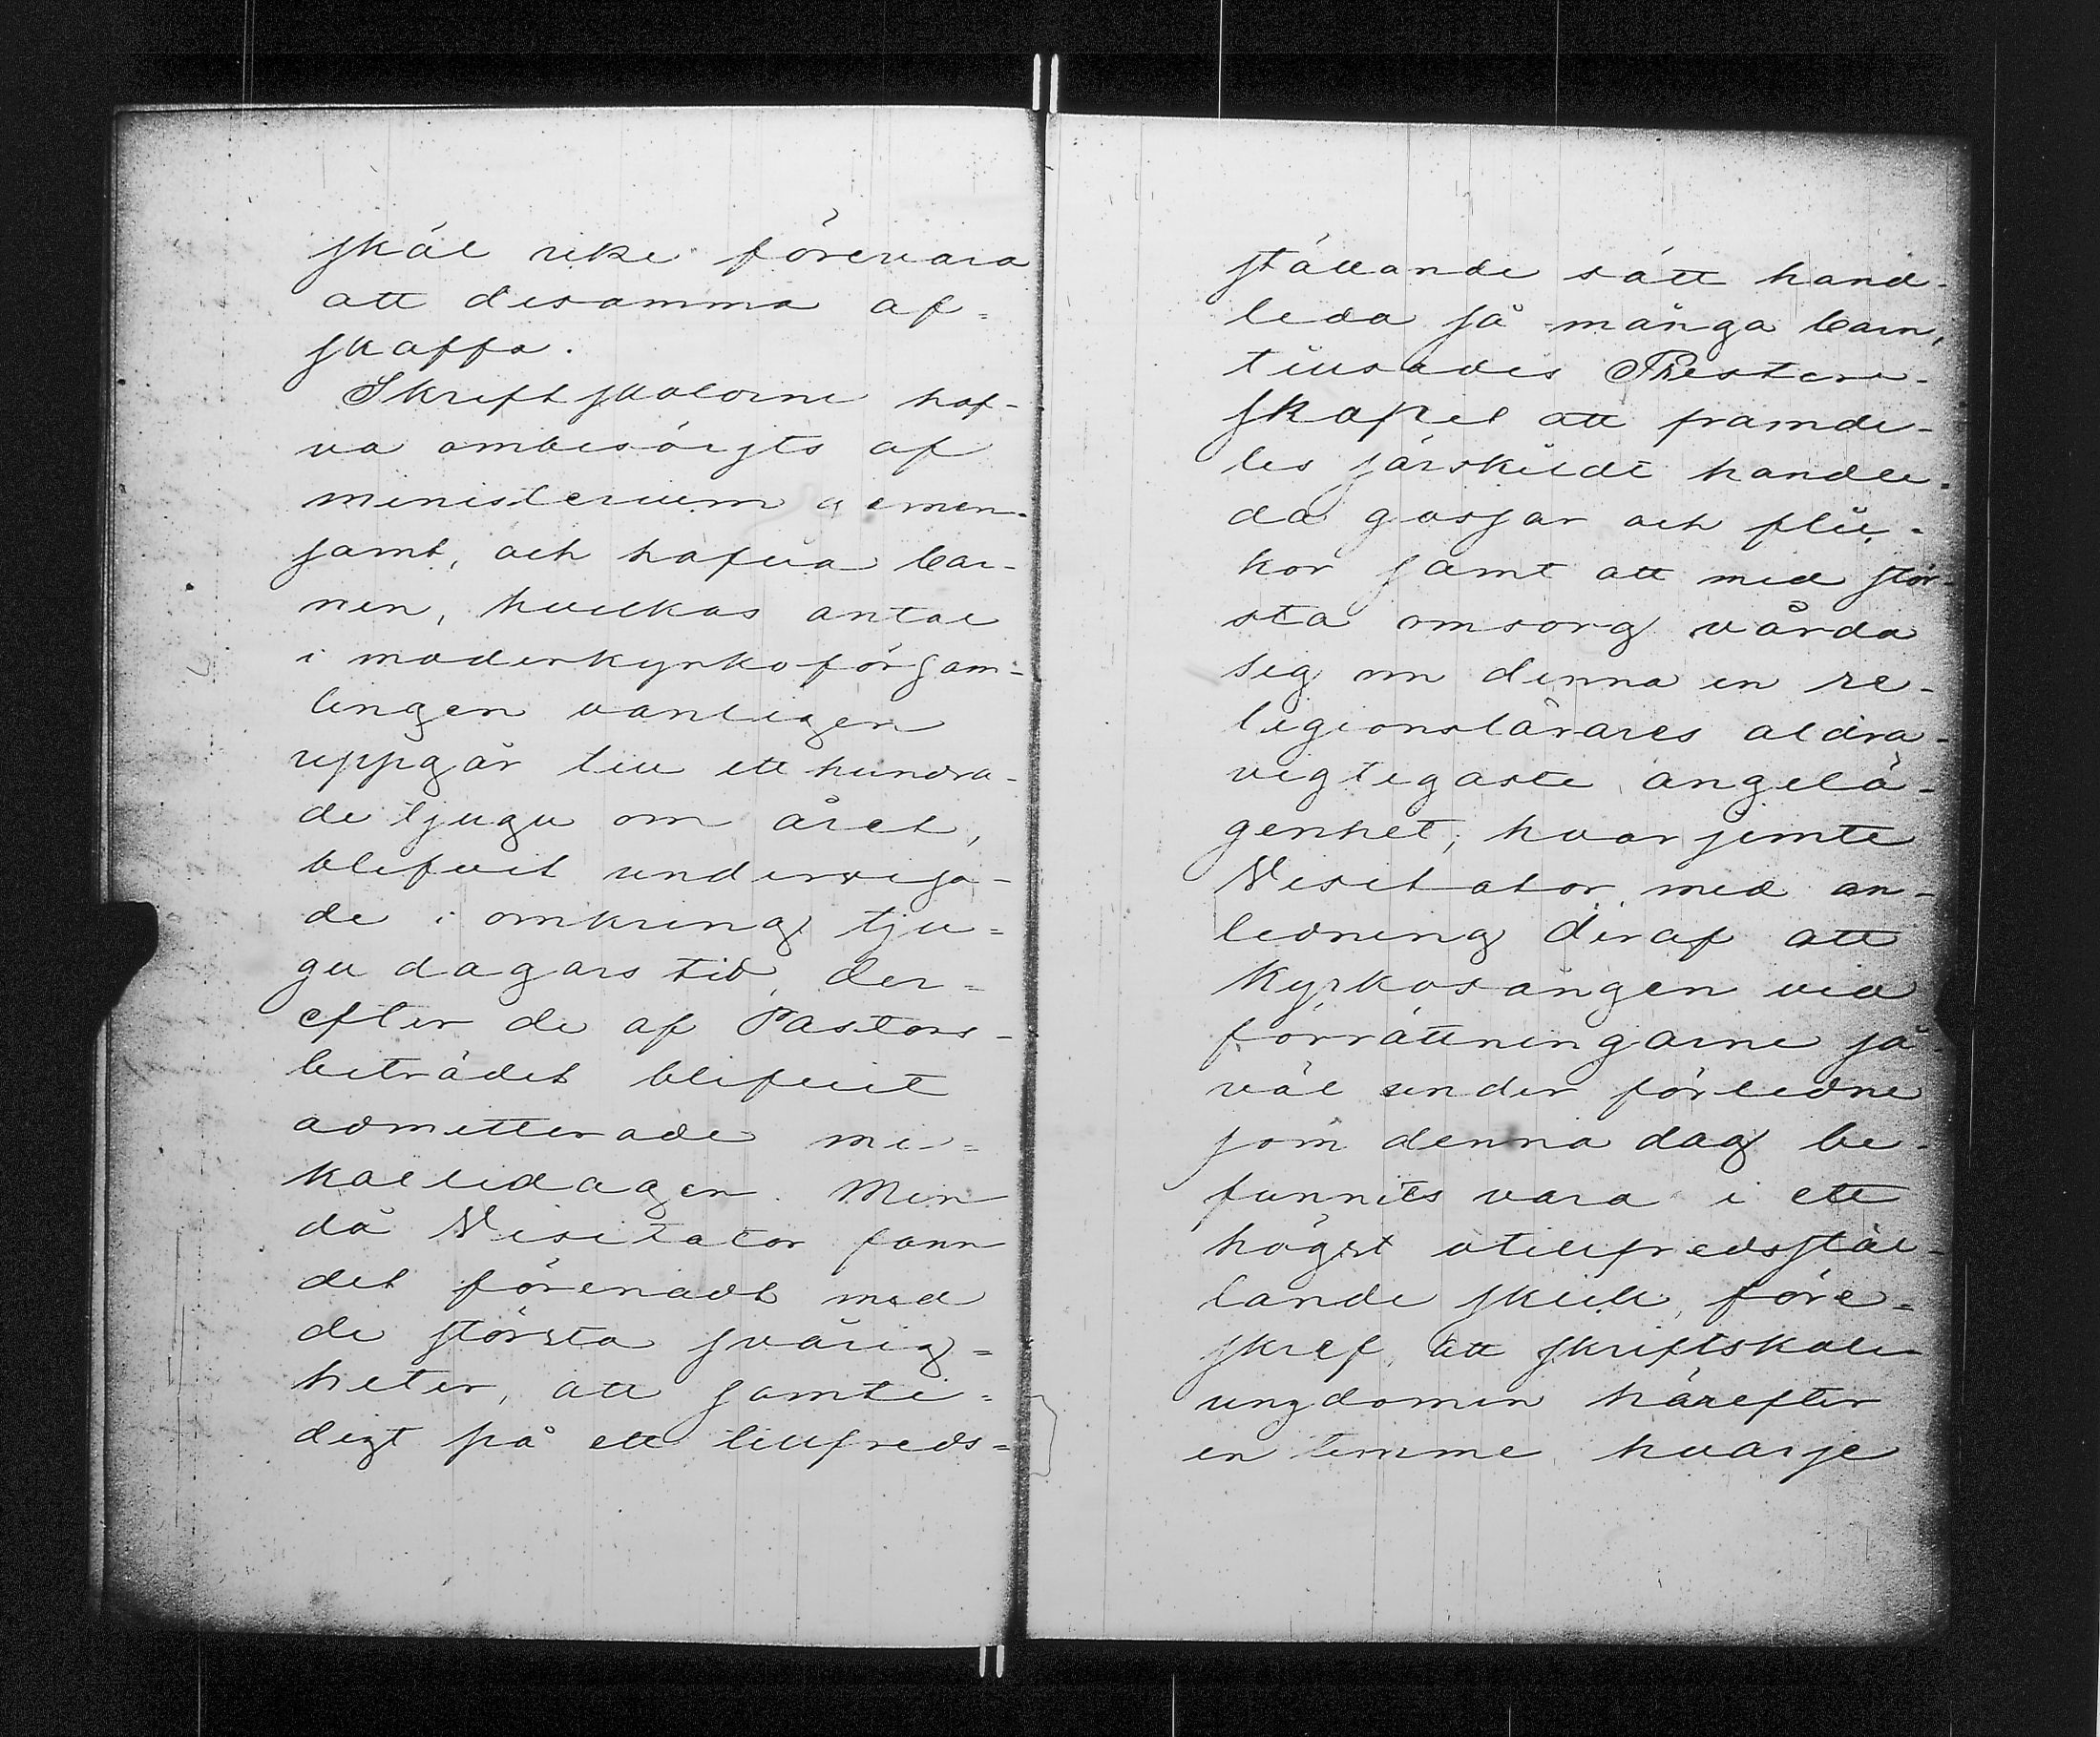 skäl icke förevara
att desamma af=
skaffa.
Skriftskolorne haf-
va ombesörjts af
ministerium gemen-
samt, och hafva bar-
nen, hvilkas antal
i moderkyrkoförsam-
lingen vanligen
uppgår till ett hundra-
de tjugu om året,
blifvit undervisa-
de i omkring tju=
gu dagars tid, der=
efter de af Pastors-
biträdet blifvit
admitterade mi-=
kaelidagen. Men
då Visitator fann
det förenadt med
de största svårig=
heter, att samti=
digt på ett tillfreds=
ställande sätt hand-
leda så många barn,
tillsades Prester-
skapet att framde-
les särskildt handle-
da gossar och flic-
kor samt att med stör-
sta omsorg vårda
sig om denna en re-
ligionslärares aldra-
vigtigaste angelä-
genhet; hvarjemte
Visitator, med an-
ledning deraf att
kyrkosången vid
förrättningarne så-
väl under förledne
som denna dag be-
funnits vara i ett
högst otillfredsstäl-
lande skick, före=
skref, att skriftskole
ungdomen härefter
en timme hvarje